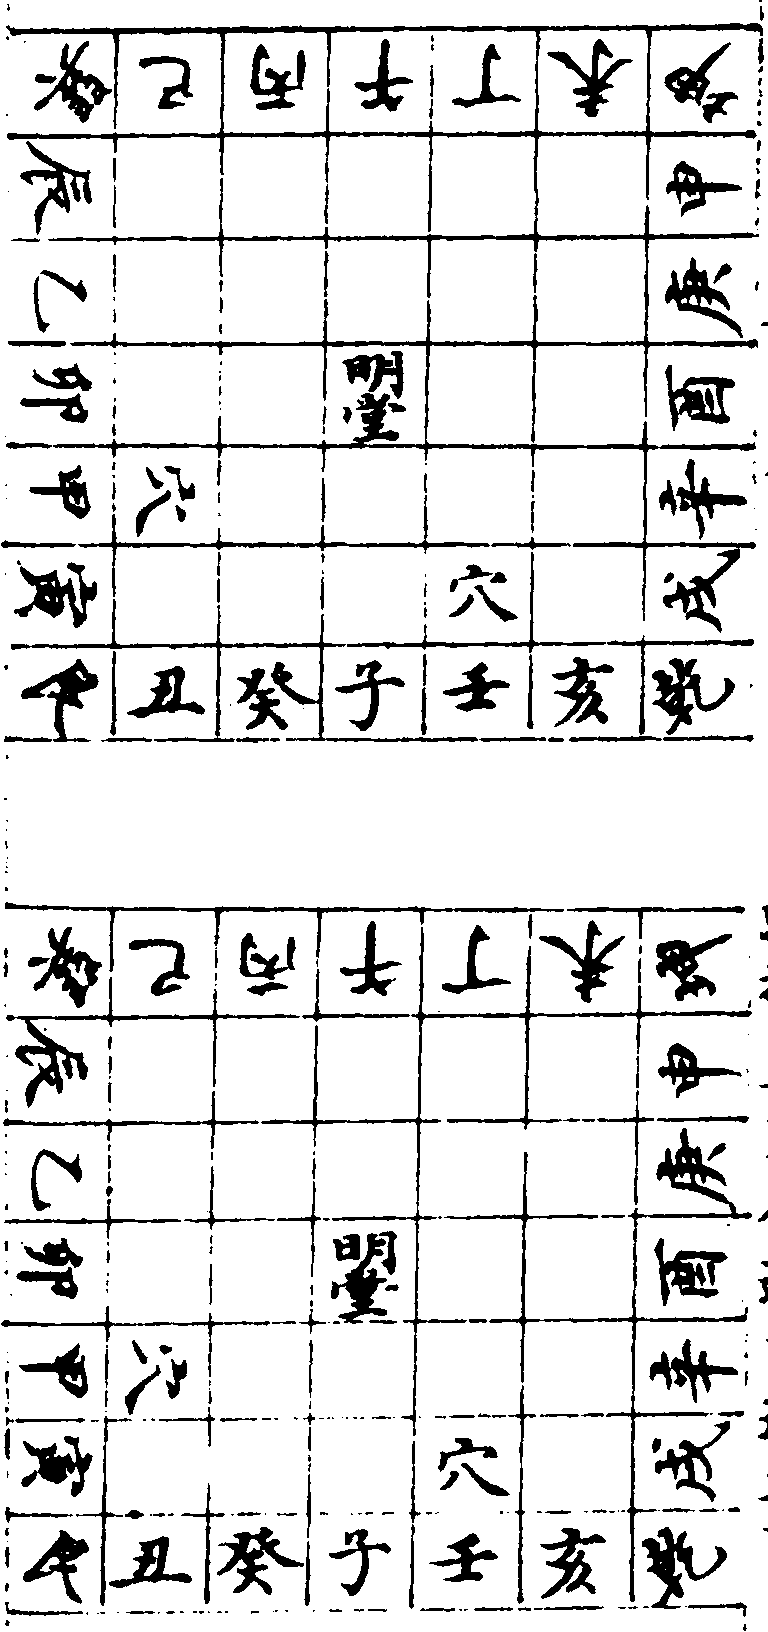 巽 巳 丙 午 丁 未 坤
辰 申
乙 庚
卯 明堂 酉
甲 穴 辛
寅 穴 戌
艮 丑 癸 子 壬 亥 乾
巽 巳 丙 午 丁 未 坤
辰 申
乙 庚
卯 明堂 酉
甲 穴 辛
寅 穴 戌
艮 丑 癸 子 壬 亥 乾